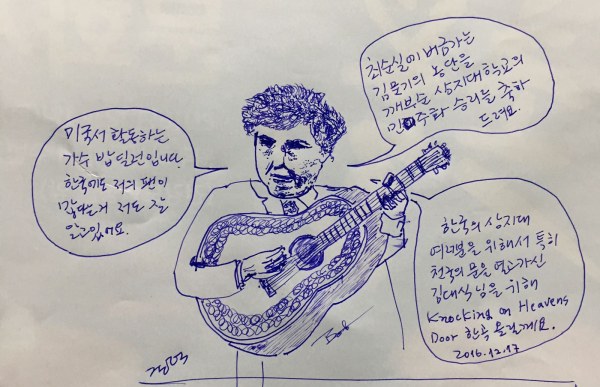 미국서 활동하는
가수 밥 딜런입니다.
한국에도 저의 팬이
많다는거 저도 잘
알고있어요.
최순실이 버금가는
김문기의 농단을
깨부순 상지대학교의
민주화 승리를 축하
드려요.
한국의 상지대
여러분을 위해서 특히
천국의 문을 열고가신
김대식님을 위해
Knocking on Heavens
Door 한곡 올릴게요.
2016.12.17
Bob